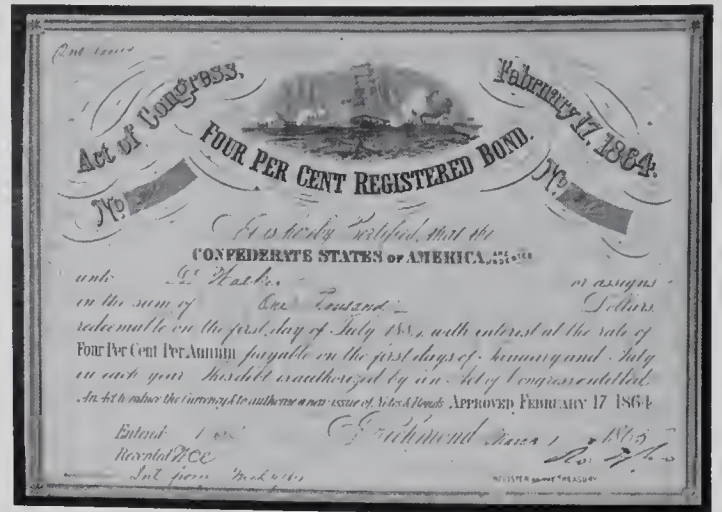 Act of Congress,
February 17, 1864.
FOUR PER CENT REGISTERED BOND.
No.
No.
It is hereby Certified, that the
CONFEDERATE STATES OF AMERICA, ARE INDEBTED
unto or assigns
in the sum of One Dollars
redeemable on the first day of July with interest at the rate of
Four Per Cent Per Annum payable on the first days of January and July
in each year. This debt is authorized by an Act of Congress entitled
An Act to reduce the Currency & to authorise a new issue of Notes & Bonds APPROVED, FEBRUARY 17 1864
Entered
Richmond 1865
Recorded
Int from
REGISTER OF THE TREASURY